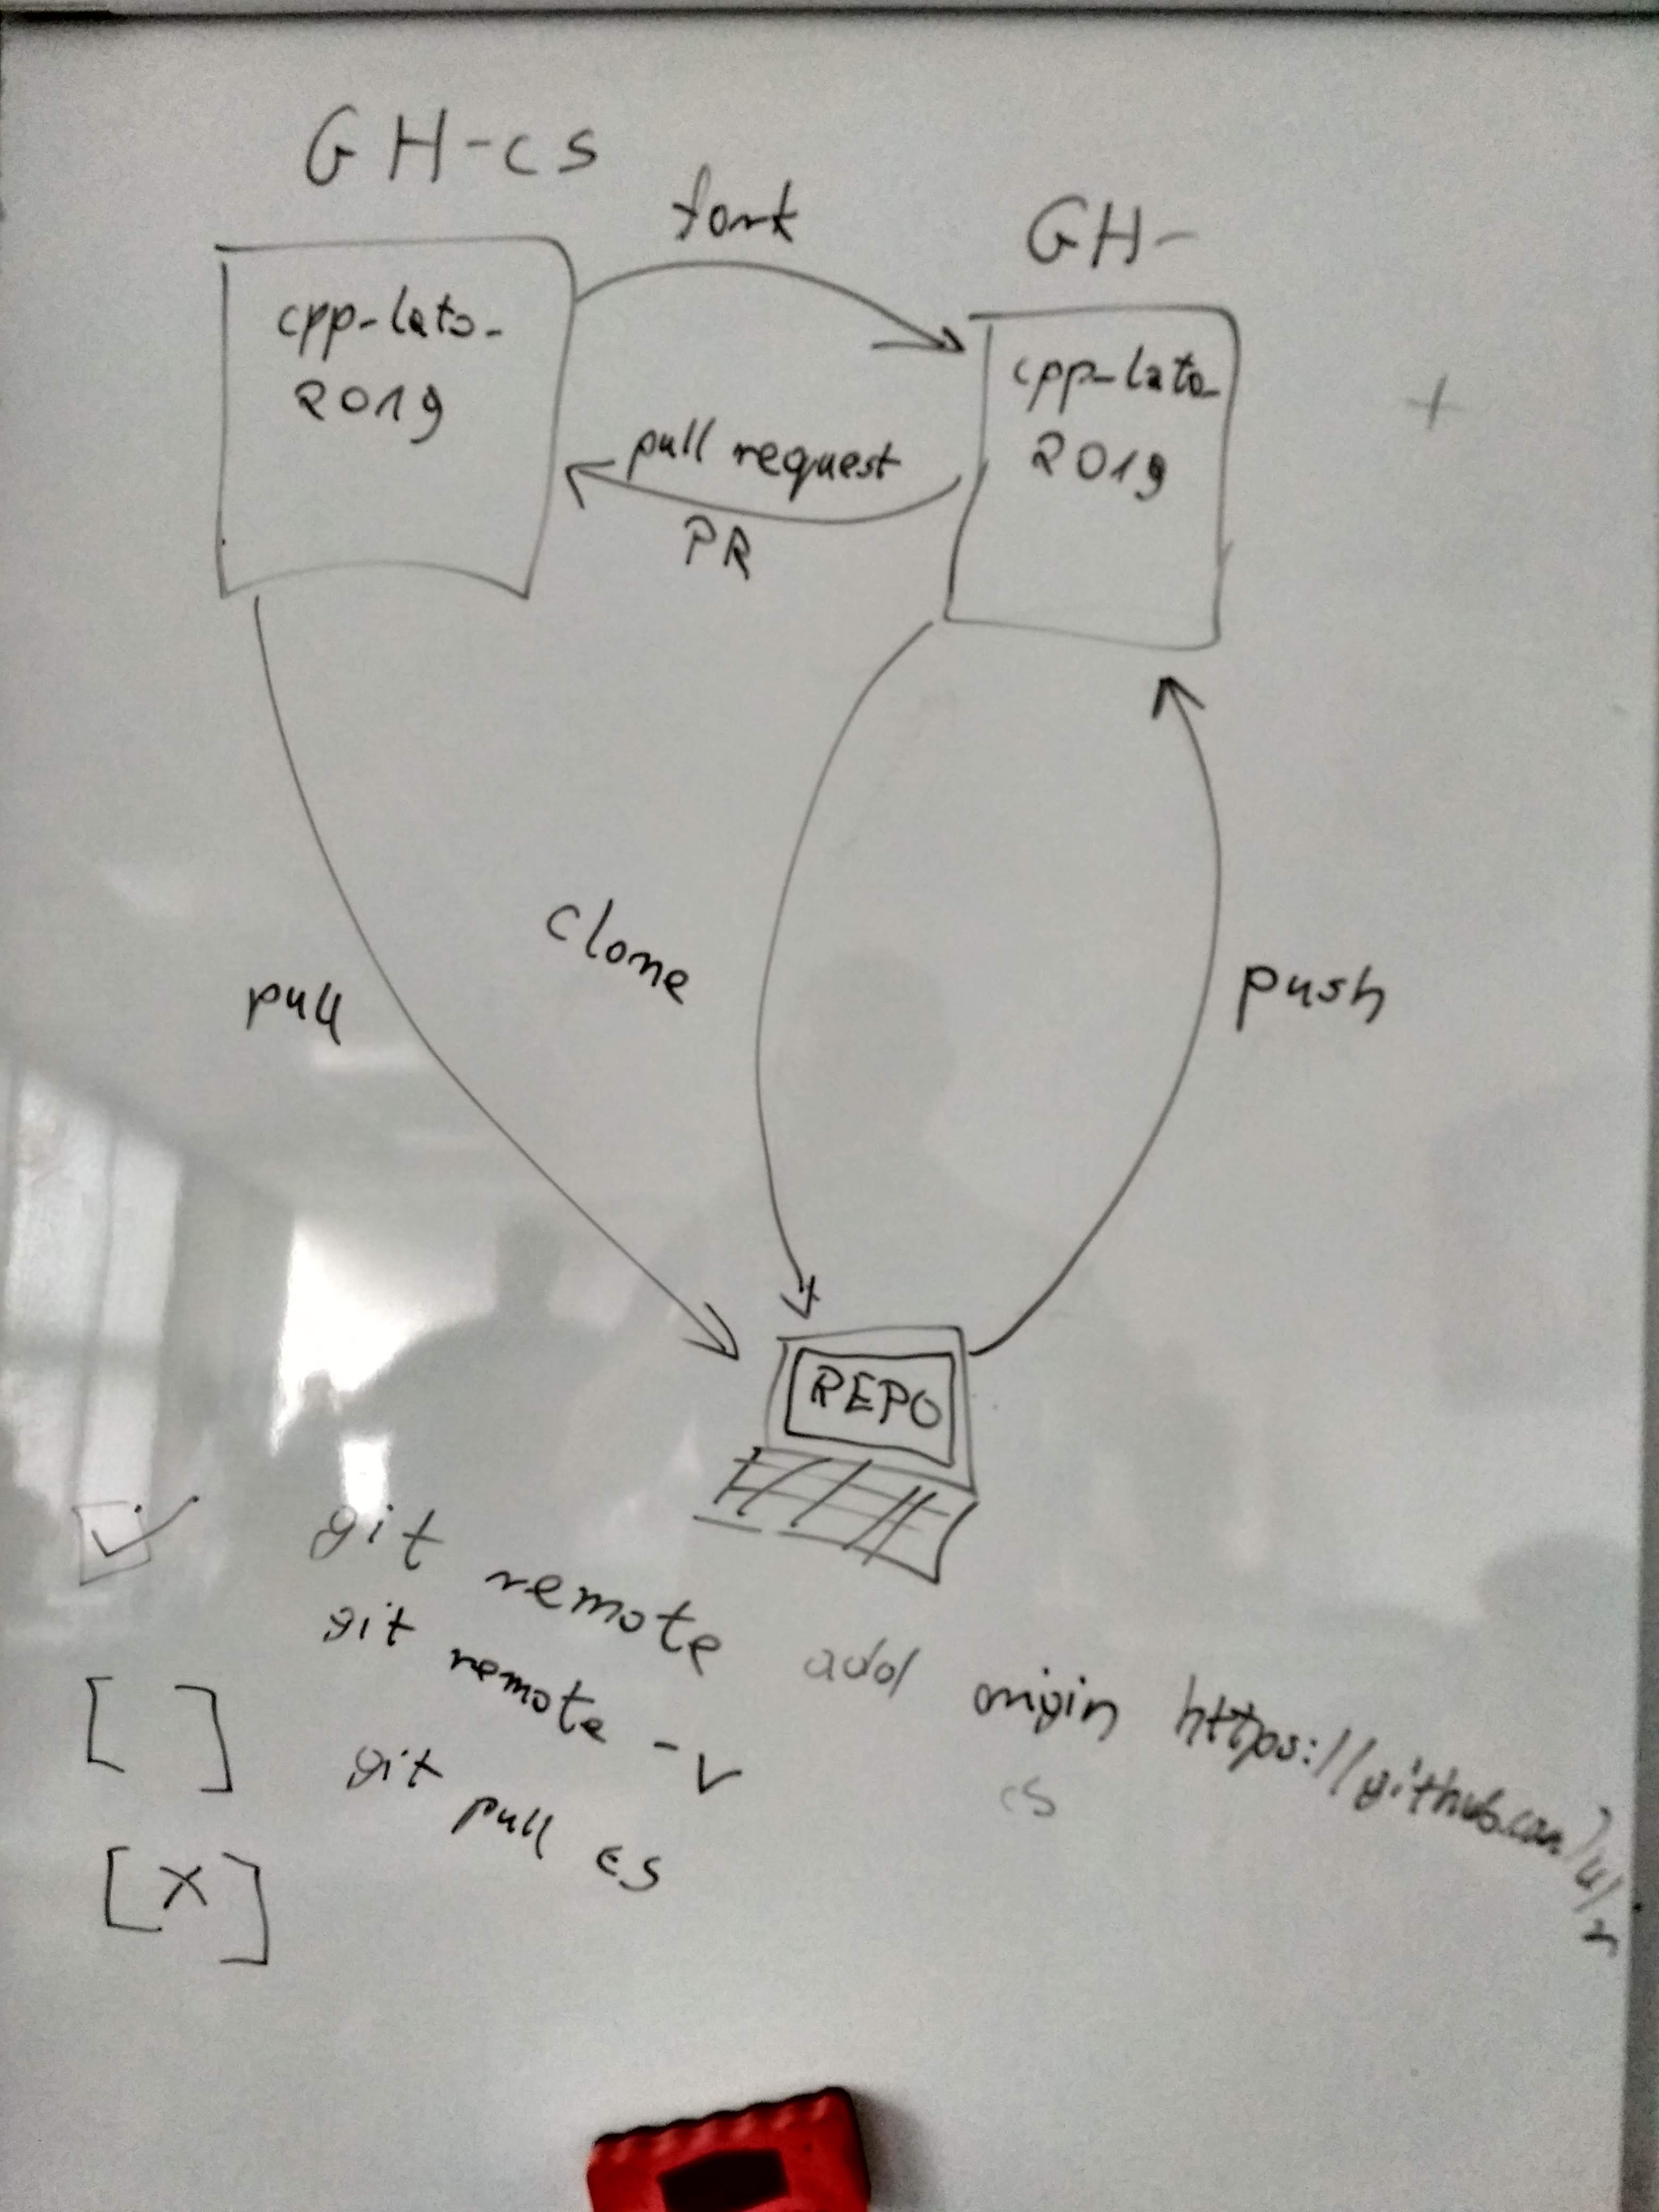 GH-cs
fork
GH-
cpp-lato-
2019
cpp-lato-
2019
+
pull request
PR
clone
pull
push
REPO
git remote add origin https://github.com/u/r
git remote -v
cs
[ ]
git pull cs
[x]